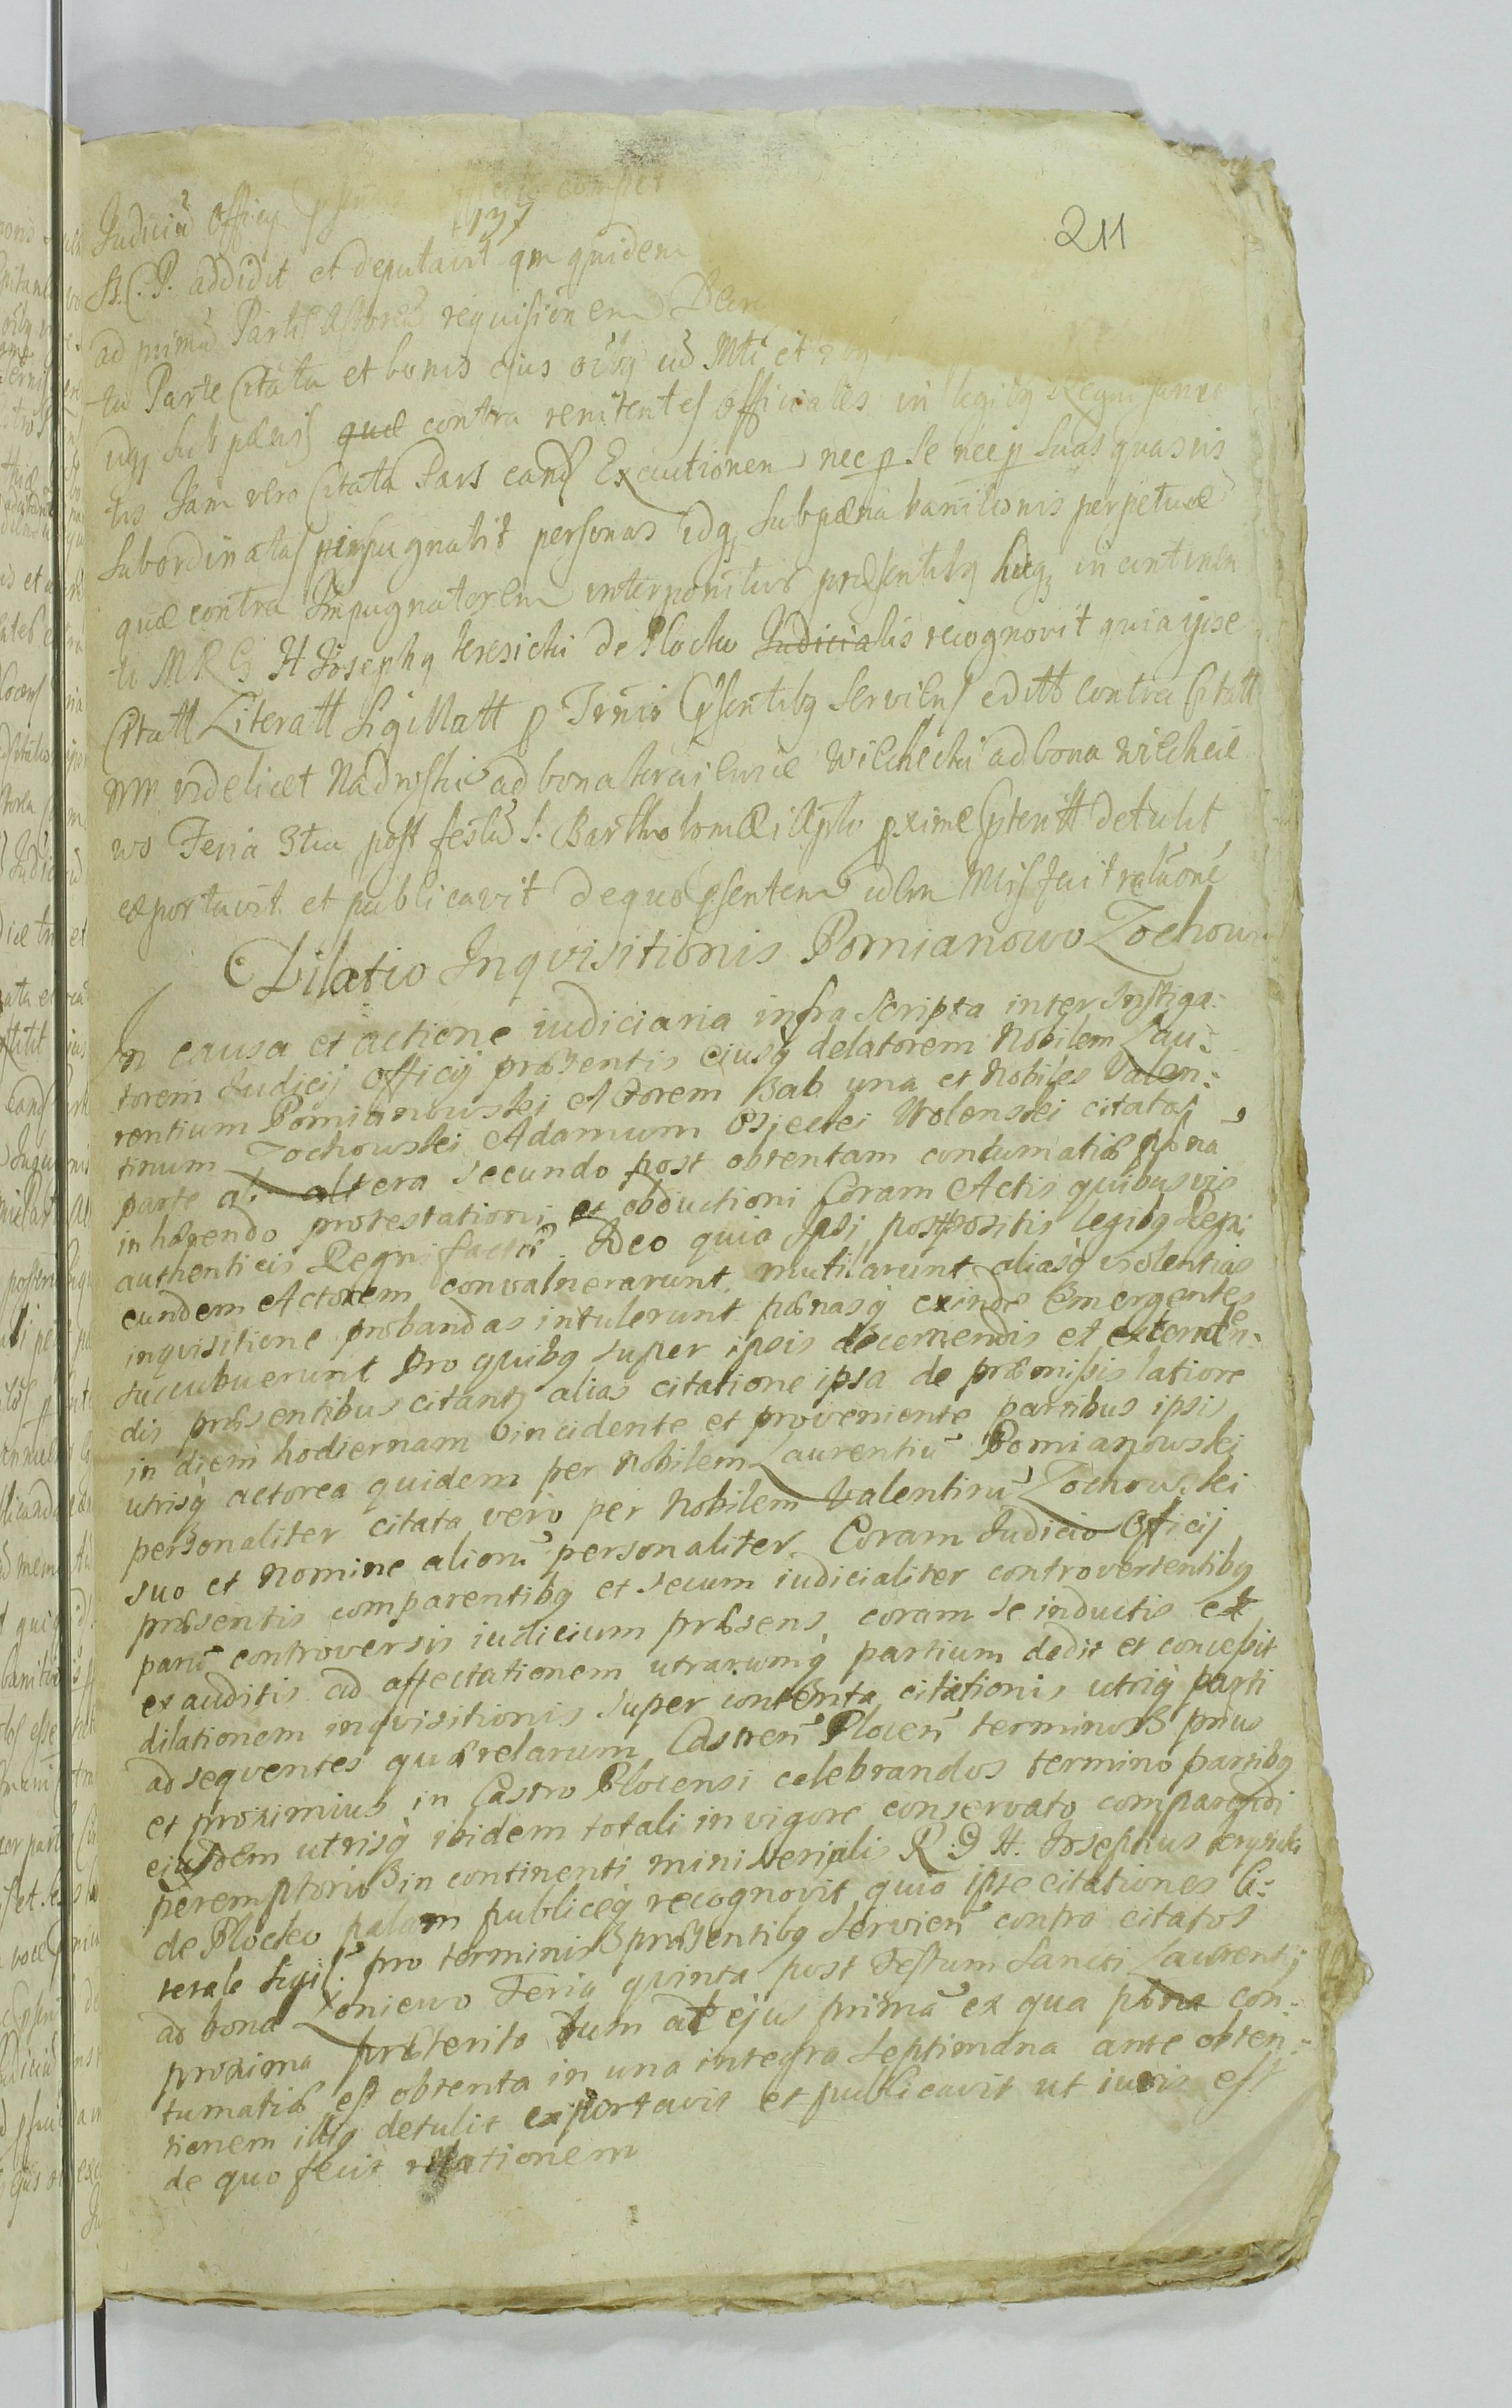 211
137
Judiciũ Officÿ
S. C. P. addidit et deputavit qm quidem
ad primã Partis Actoreæ requisionem
ta Parte Citata et bonis ejus oibq ad Mti et
idq sub pænis quæ contra renitentes officiales in legibq Regni
tis Jam vero Citata Pars eand Executionem nec p se nec p suas quasvis
subordinatas impugnabit personas idq sub pæna banitionis perpetuæ
quæ contra Impugnatorem interponitur præsentibq hicq in continen
ti M R G H Josephq de Plocko Judicialis recognovit quia ipse
Citatt Literatt Sigillatt p Trnis Psentibq serviens editt contra Citatt
NN videlicet ad bona ad bona
wo Feria 3tia post festũ S. Bartholomæi Aplo pxime Pteritt detulit
exportavit et publicavit de quo psentem idem Mis fecit relãonẽ
Dilatio Inqvisitionis Pomianowo Zochow
In causa et actione iudiciaria infra scripta inter Instiga:
torem Judicij Officij præsentis ejusq delatorem Nobilem Lau:
rentium Pomianowski Actorem ab una et Nobiles Valen:
tinum Zochowski Adamum Osiecki Wolenski citatos
parte ab altera secundo post obtentam contumatiæ pænã
inhærendo protestationi et obductioni Coram Actis quibusvis
authenticis Regni factæ. Ideo quia Ipsi postpositis legibq Regni
eundem Actorem convulnerarunt, mutilarunt aliasq violentias
inqvisitione probandas intulerunt pænasq exinde emergentes
succubuerunt Pro quibq super ipsis decernendis et extenden:
dis præsentibus citantq alias citatione ipsa de præmissis latiore
in diem hodiernam incidente et proveniente partibus ipsis
utrisq actorea quidem per Nobilem Laurentiũ Pomianowski
personaliter citata vero per Nobilem Valentinũ Zochowski
suo et nomine aliorũ personaliter. Coram Judicio Officij
præsentis comparentibq et secum iudicialiter controvertentibq
partiũ controversis iudicium præsens, coram se inductis et
exauditis ad affectationem utrarumq partium dedit et concessit
dilationem inqvisitionis super contenta citationis utriq parti
ad seqventes quærelarum Castren Plocen terminos prius
et proximius in Castro Plocensi celebrandos termino partibq
eiusdem utrisq ibidem totali in vigore conservato comparendi
peremptorio in continenti ministerialis R. G H. Josephus
de Plocko palam publiceq recognovit quia ipse citationes li:
terale sigil: pro terminis præsentibq servien contra citatos
ad bona Zoniewo Feria quinta post Festum Sancti Laurentj
proxima præterito tum ad ejus primã ex qua pæna con:
tumatiæ est obtenta in una integra septimana ante obten:
tionem illiq detulit exportavit et publicavit ut iuris est
de quo fecit relationem